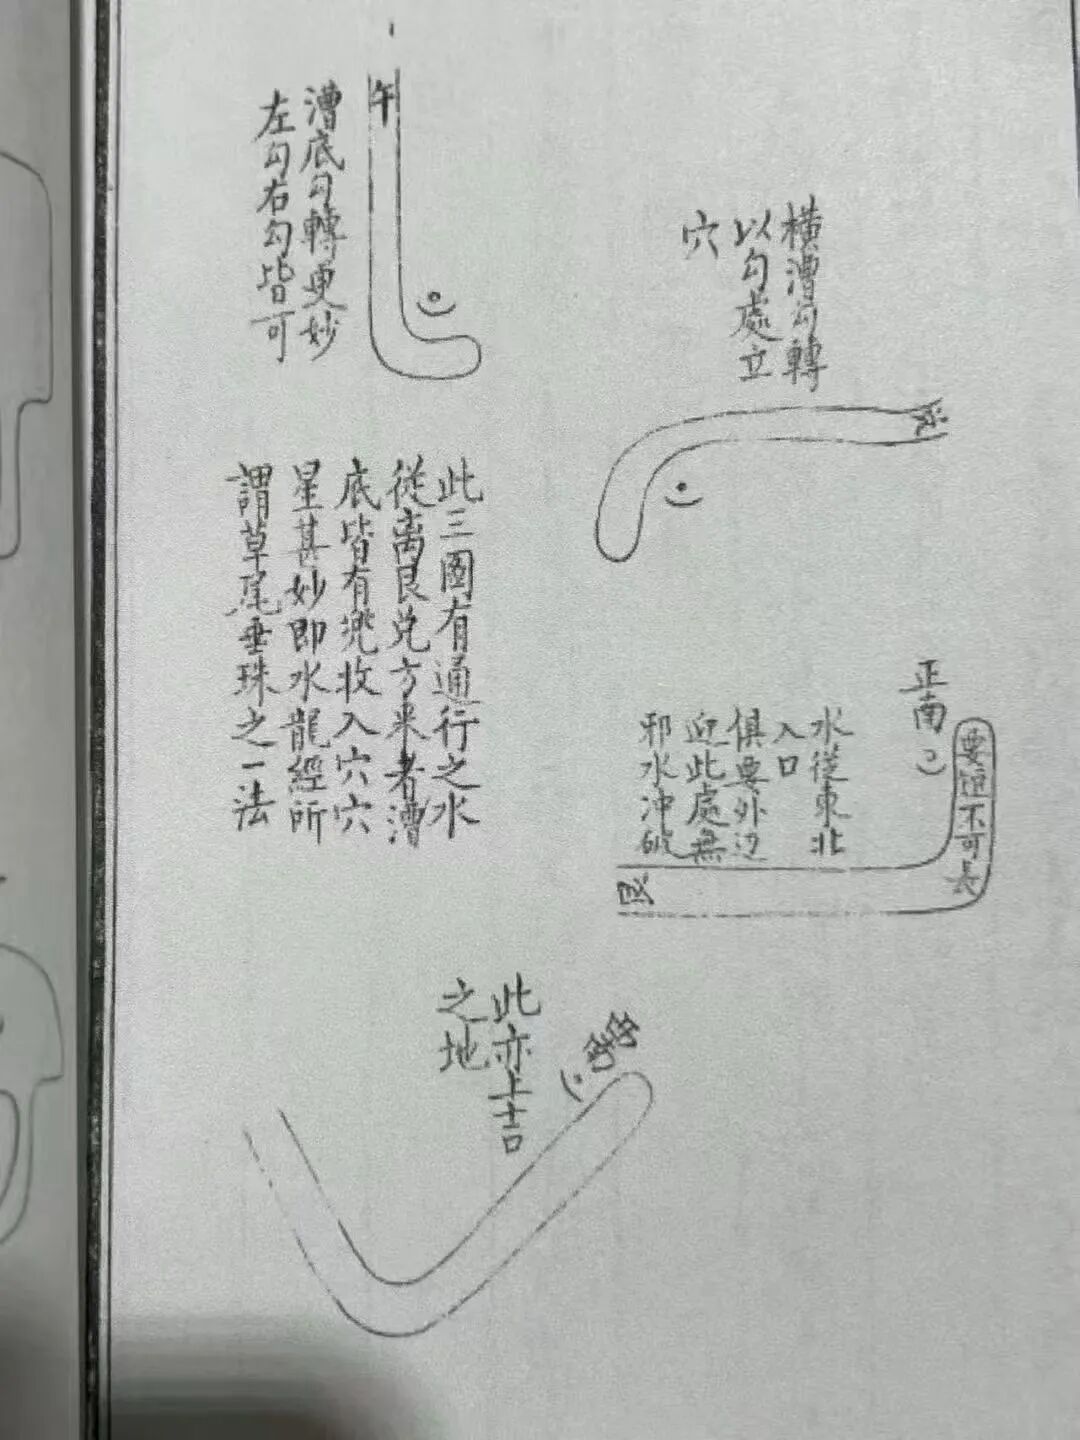 橫漕勾轉
以勾處立
穴
午
漕底勾轉更妙
左勾右勾皆可
此三圖有通行之水
從离艮兌方來者漕
底皆有兠收入穴穴
星甚妙即水龍經所
謂草尾垂珠之一法
正南
要短不可長
水從東北
入口
俱要外边
迎此處無
邪水冲破
艮
此亦上吉
之地